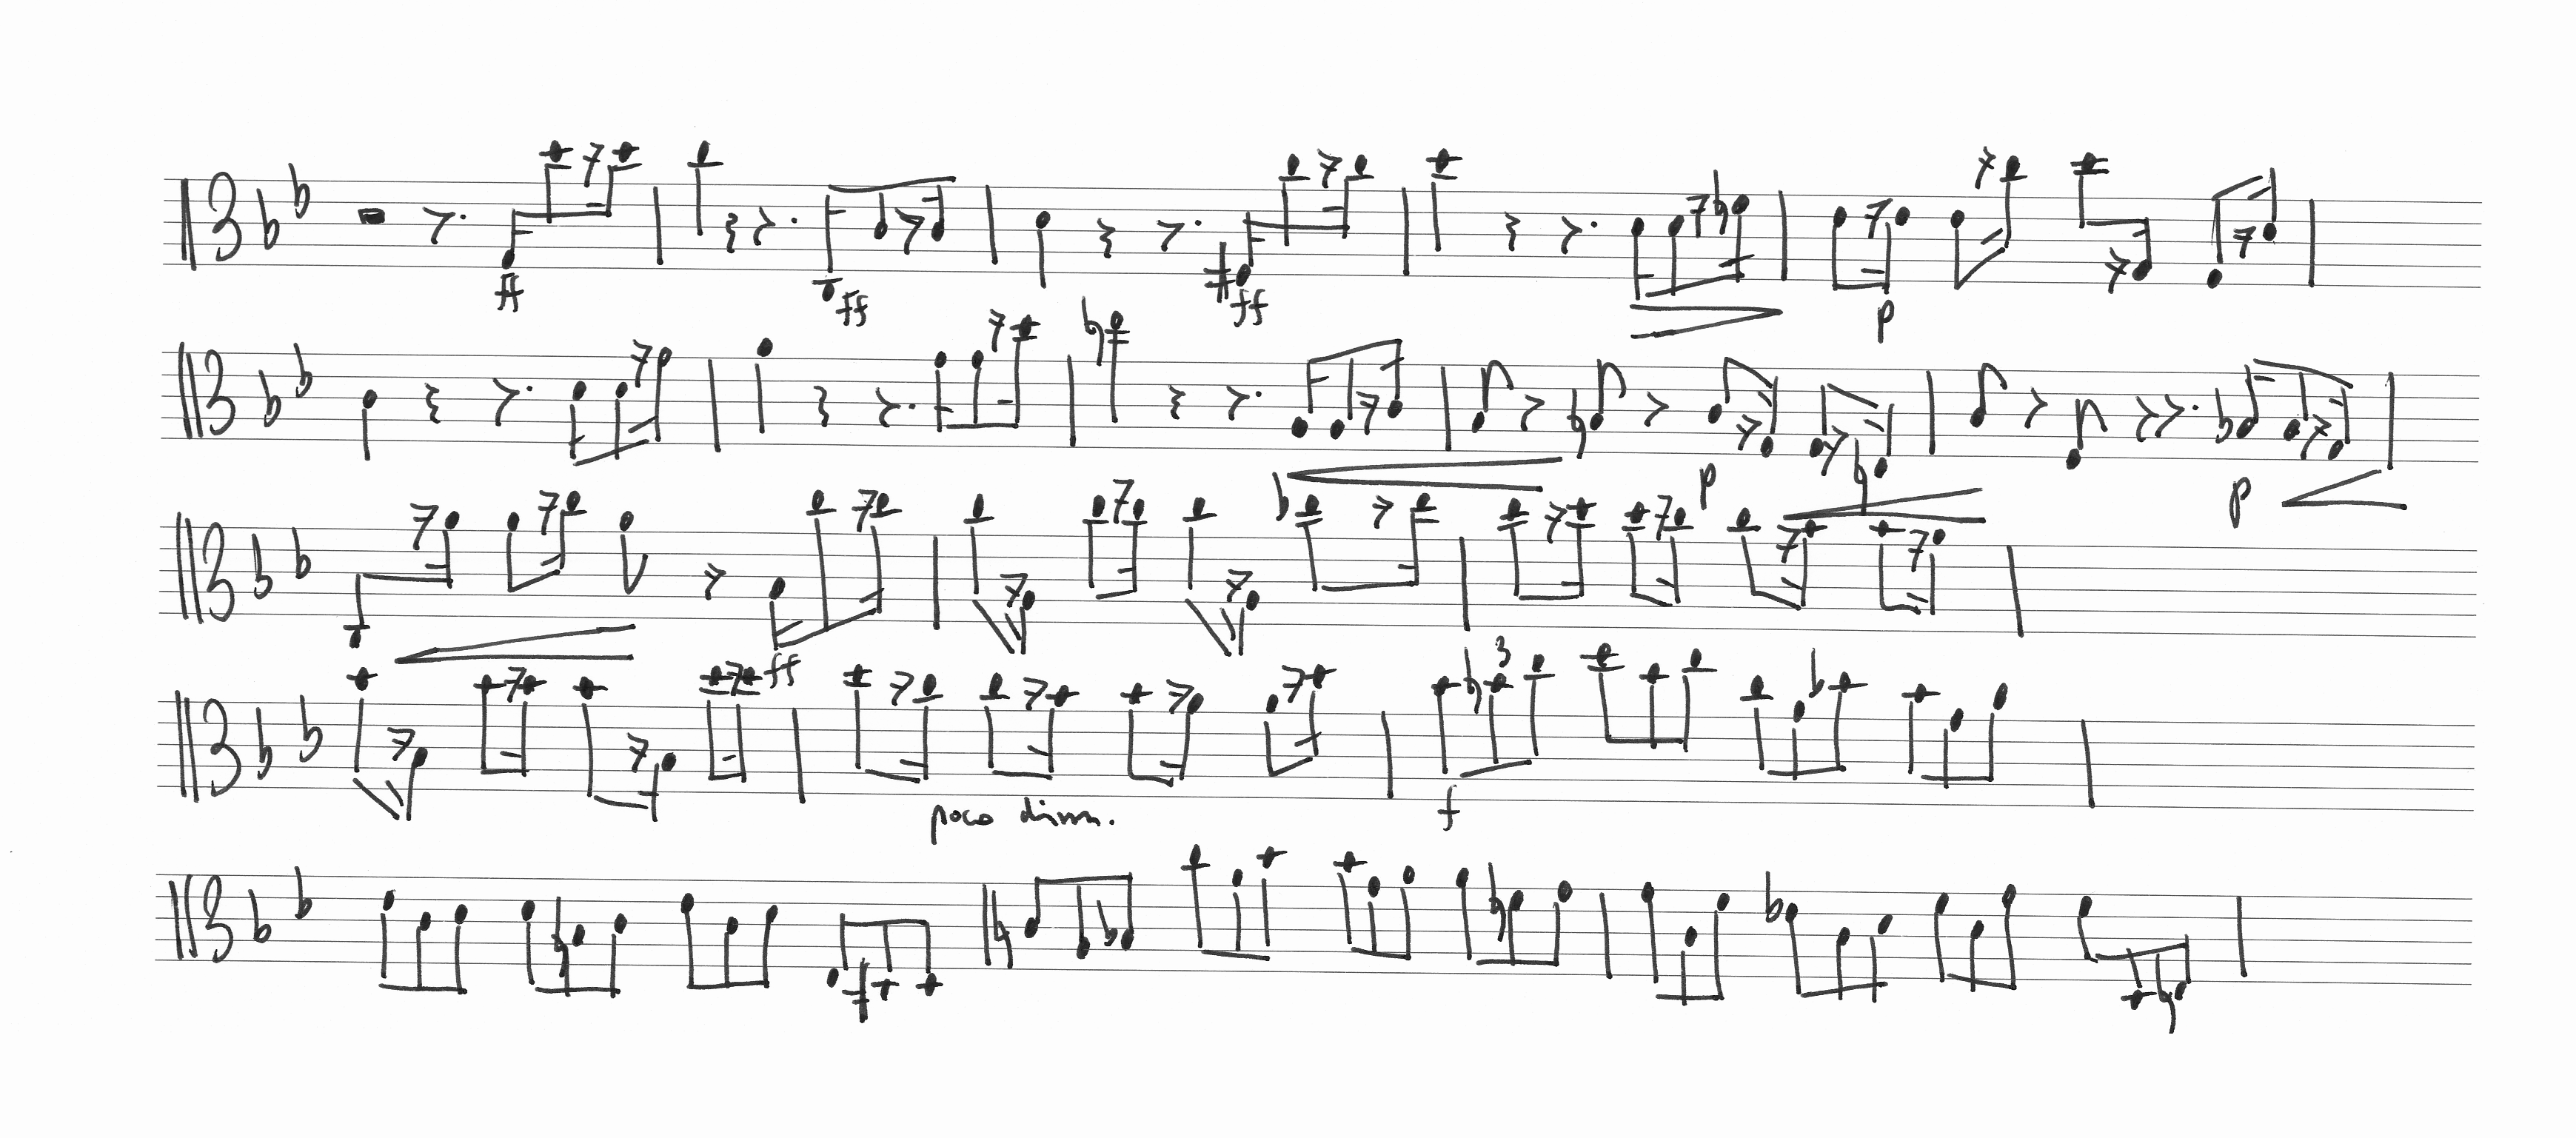 ff ff ff p
p p
ff
3
poco dimm.
f